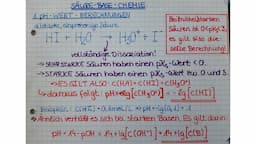 SÄURE-BASE-CHEMIE
1. pH-WERT-BERECHNUNGEN
starke, einprotonige Säure
HI + H₂O → H₃O⁺ + I⁻
vollständige Dissoziation!
Bei
Säuren
es gilt
selbe Berechnung!
→ SEHR STARKE Säuren haben einen pKs-Wert < 0.
→ STARKE Säuren haben einen pKs-Wert zw. 0 und 3.
→ ES GILT ALSO: c(HA) = c(HI) = c(H₃O⁺)
↳ daraus folgt: pH = -lg[c(H₃O⁺)] = -lg[c(HI)]
Beispiel: c(HI) = 0,1 mol/L ⇒ pH = -lg(0,1) = 1
→ Ähnlich verhält es sich bei starken Basen. Es gilt dann:
pH = 14 - pOH = 14 + lg[c(OH⁻)] = 14 + lg[c(B)]